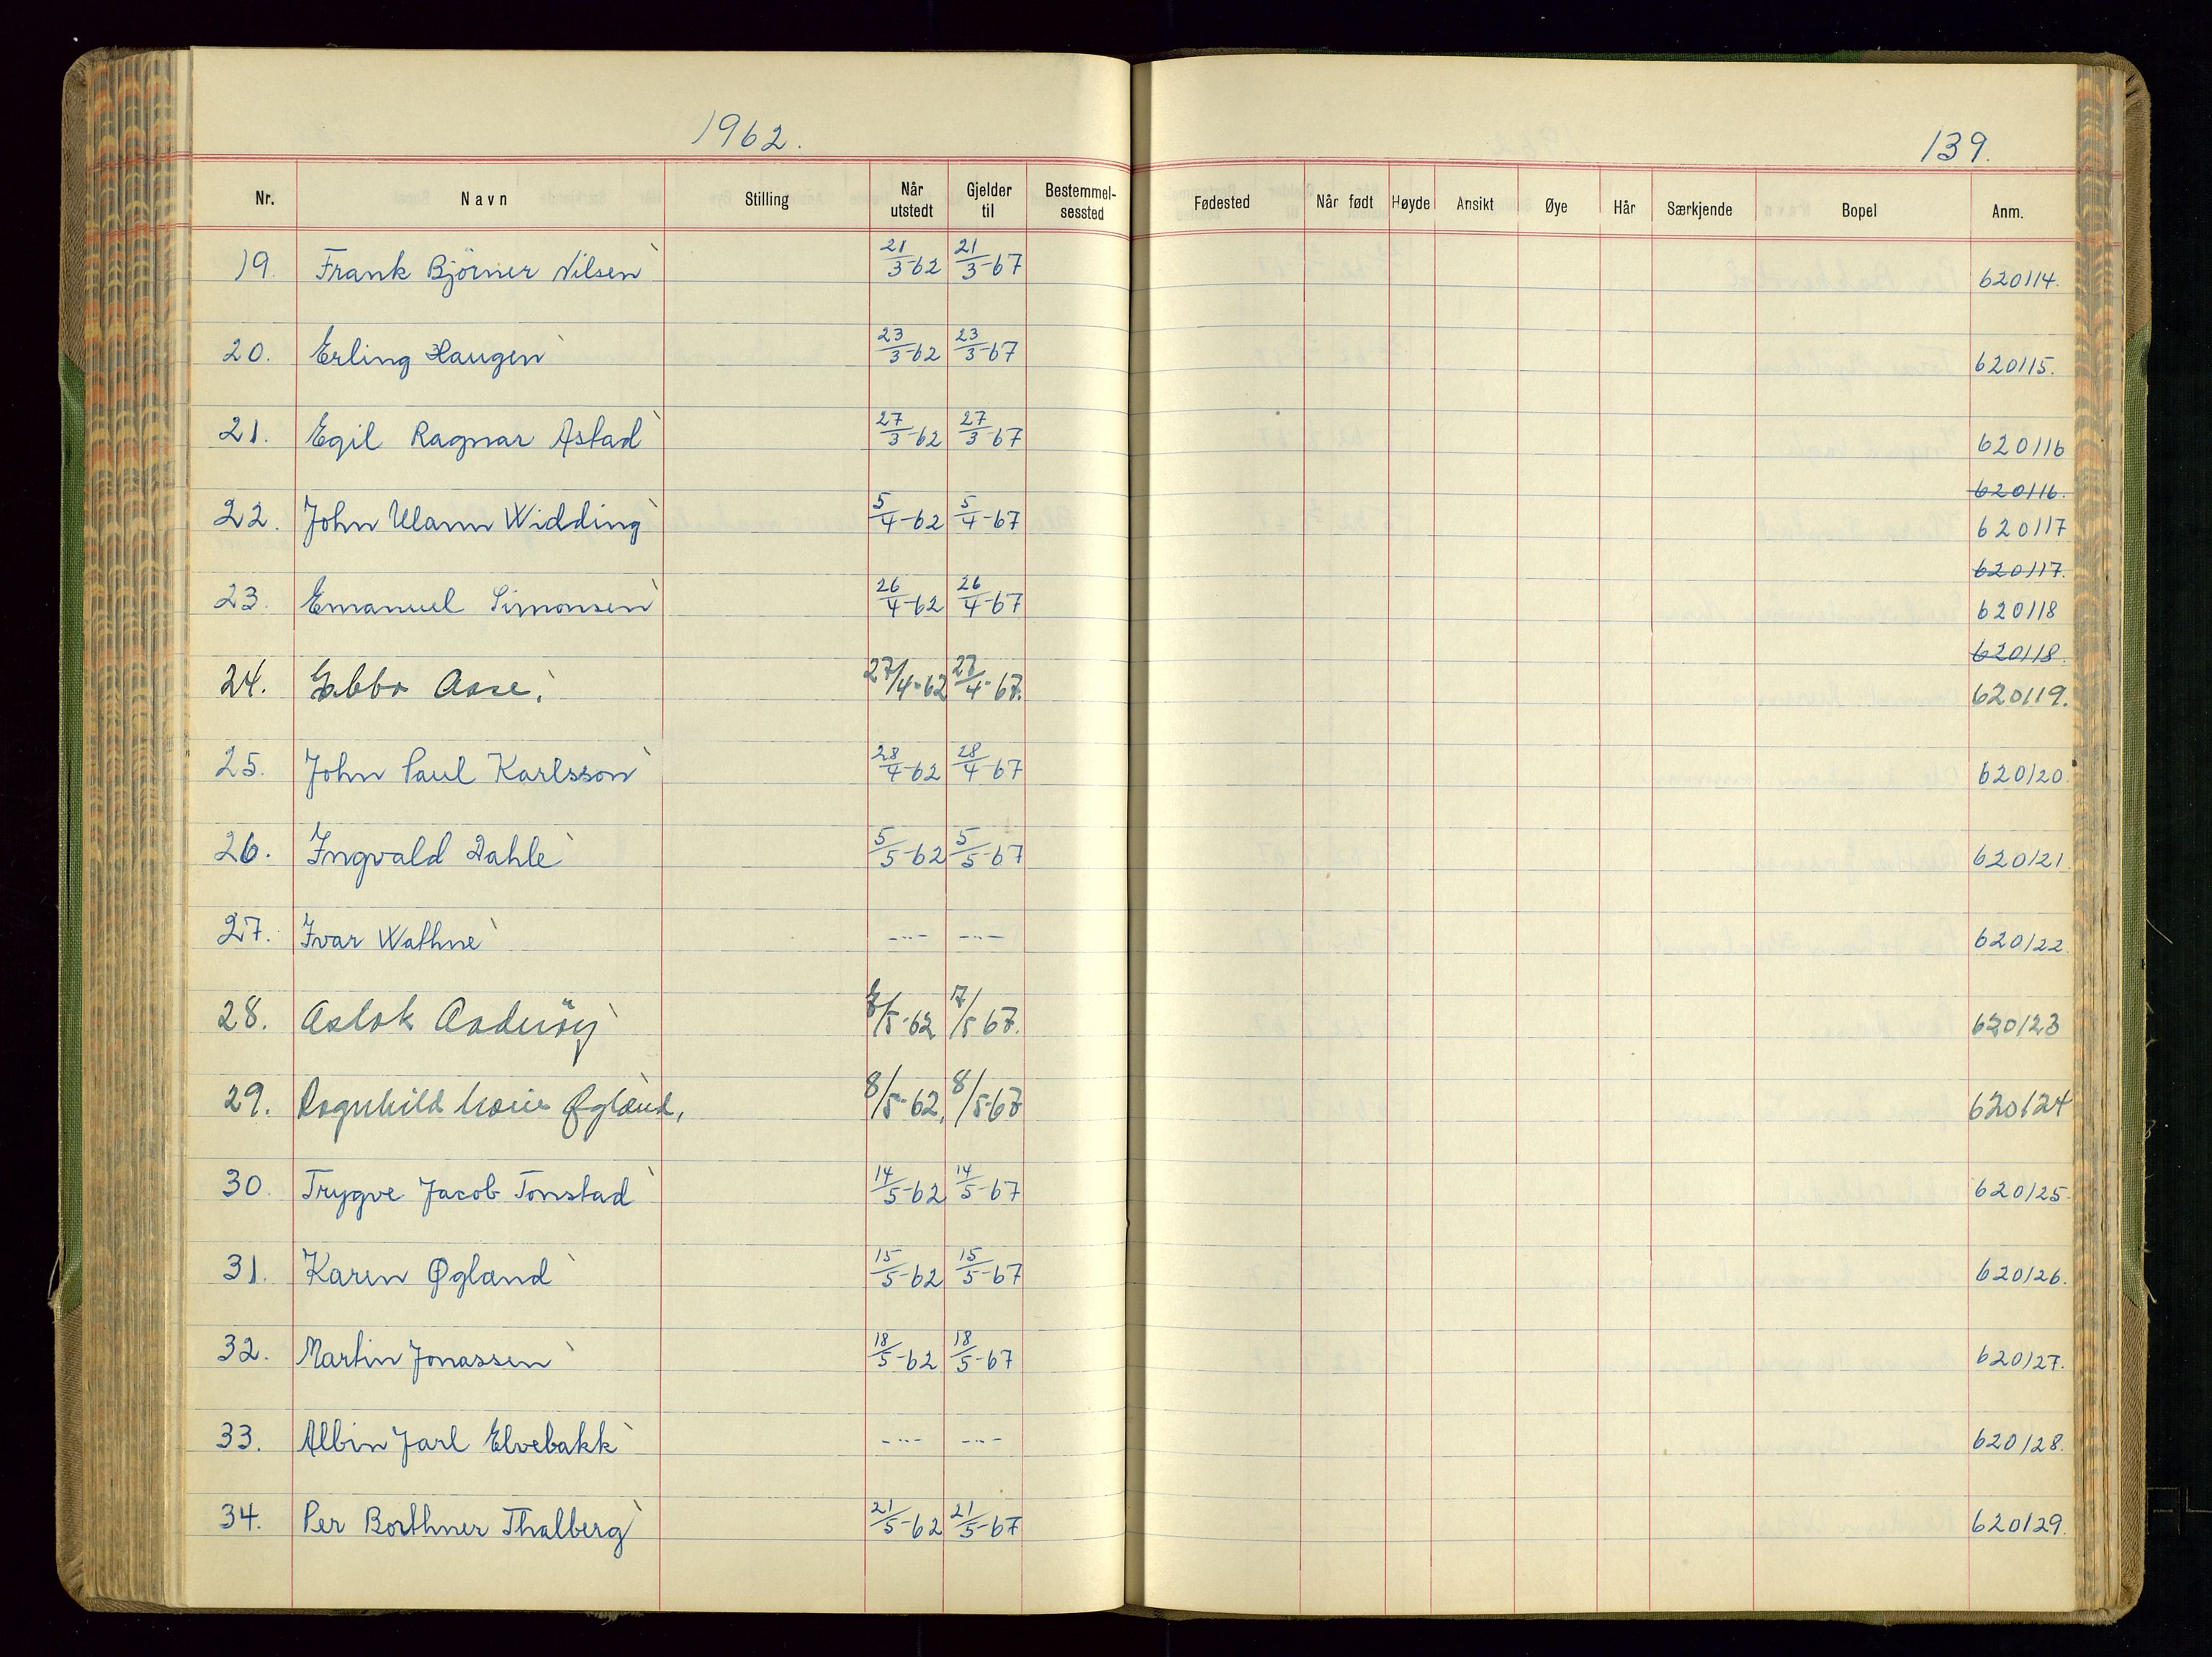 1962.
139.
Nr. Navn Stilling Når utstedt Gjelder til Bestemmel-sessted Fødested Når født Høyde Ansikt Øye Hår Særkjende Bopel Anm.
19. Frank Björner Nilsen 21/3-62 21/3-67 620114.
20. Erling Haugen 23/3-62 23/3-67 620115.
21. Egil Ragnar Astad 27/3-62 27/3-67 620116
620116.
22. John Ulann Widding 5/4-62 5/4-67 620117
620117.
23. Emanuel Simonsen 26/4-62 26/4-67 620118
620118.
24. Ebba Aase. 27/4-62 27/4-67. 620119.
25. John Paul Karlsson 28/4-62 28/4-67 620120.
26. Ingvald Dahle 5/5-62 5/5-67 620121.
27. Ivar Wathne -"- -"- 620122.
28. Aslak 7/5-62 7/5 67. 620123
29. Ragnhild Marie Øgland, 8/5-62, 8/5-67 620124
30. Trygve Jacob Tonstad 14/5-62 14/5-67 620125.
31. Karen Øgland 15/5-62 15/5-67 620126.
32. Martin Jonassen 18/5-62 18/5-67 620127.
33. Albin Jarl Elvebakk -"- -"- 620128.
34. Per Borthner Thalberg 21/5-62 21/5-67 620129.